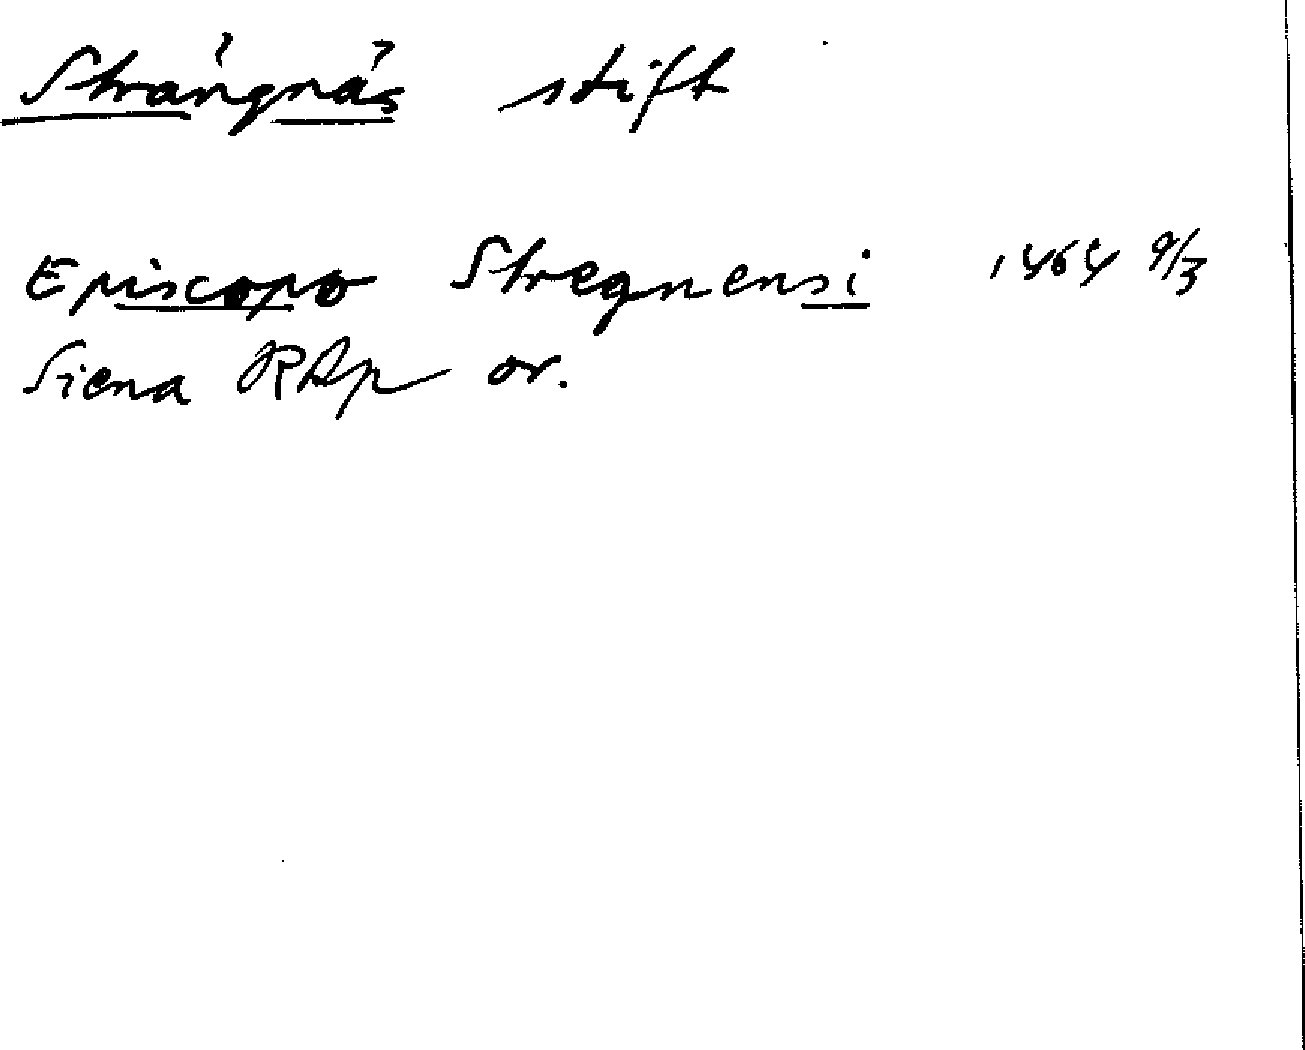 Strängnäs stift
Episcopo Stregnensi 1464 9/3
Siena RAp or.